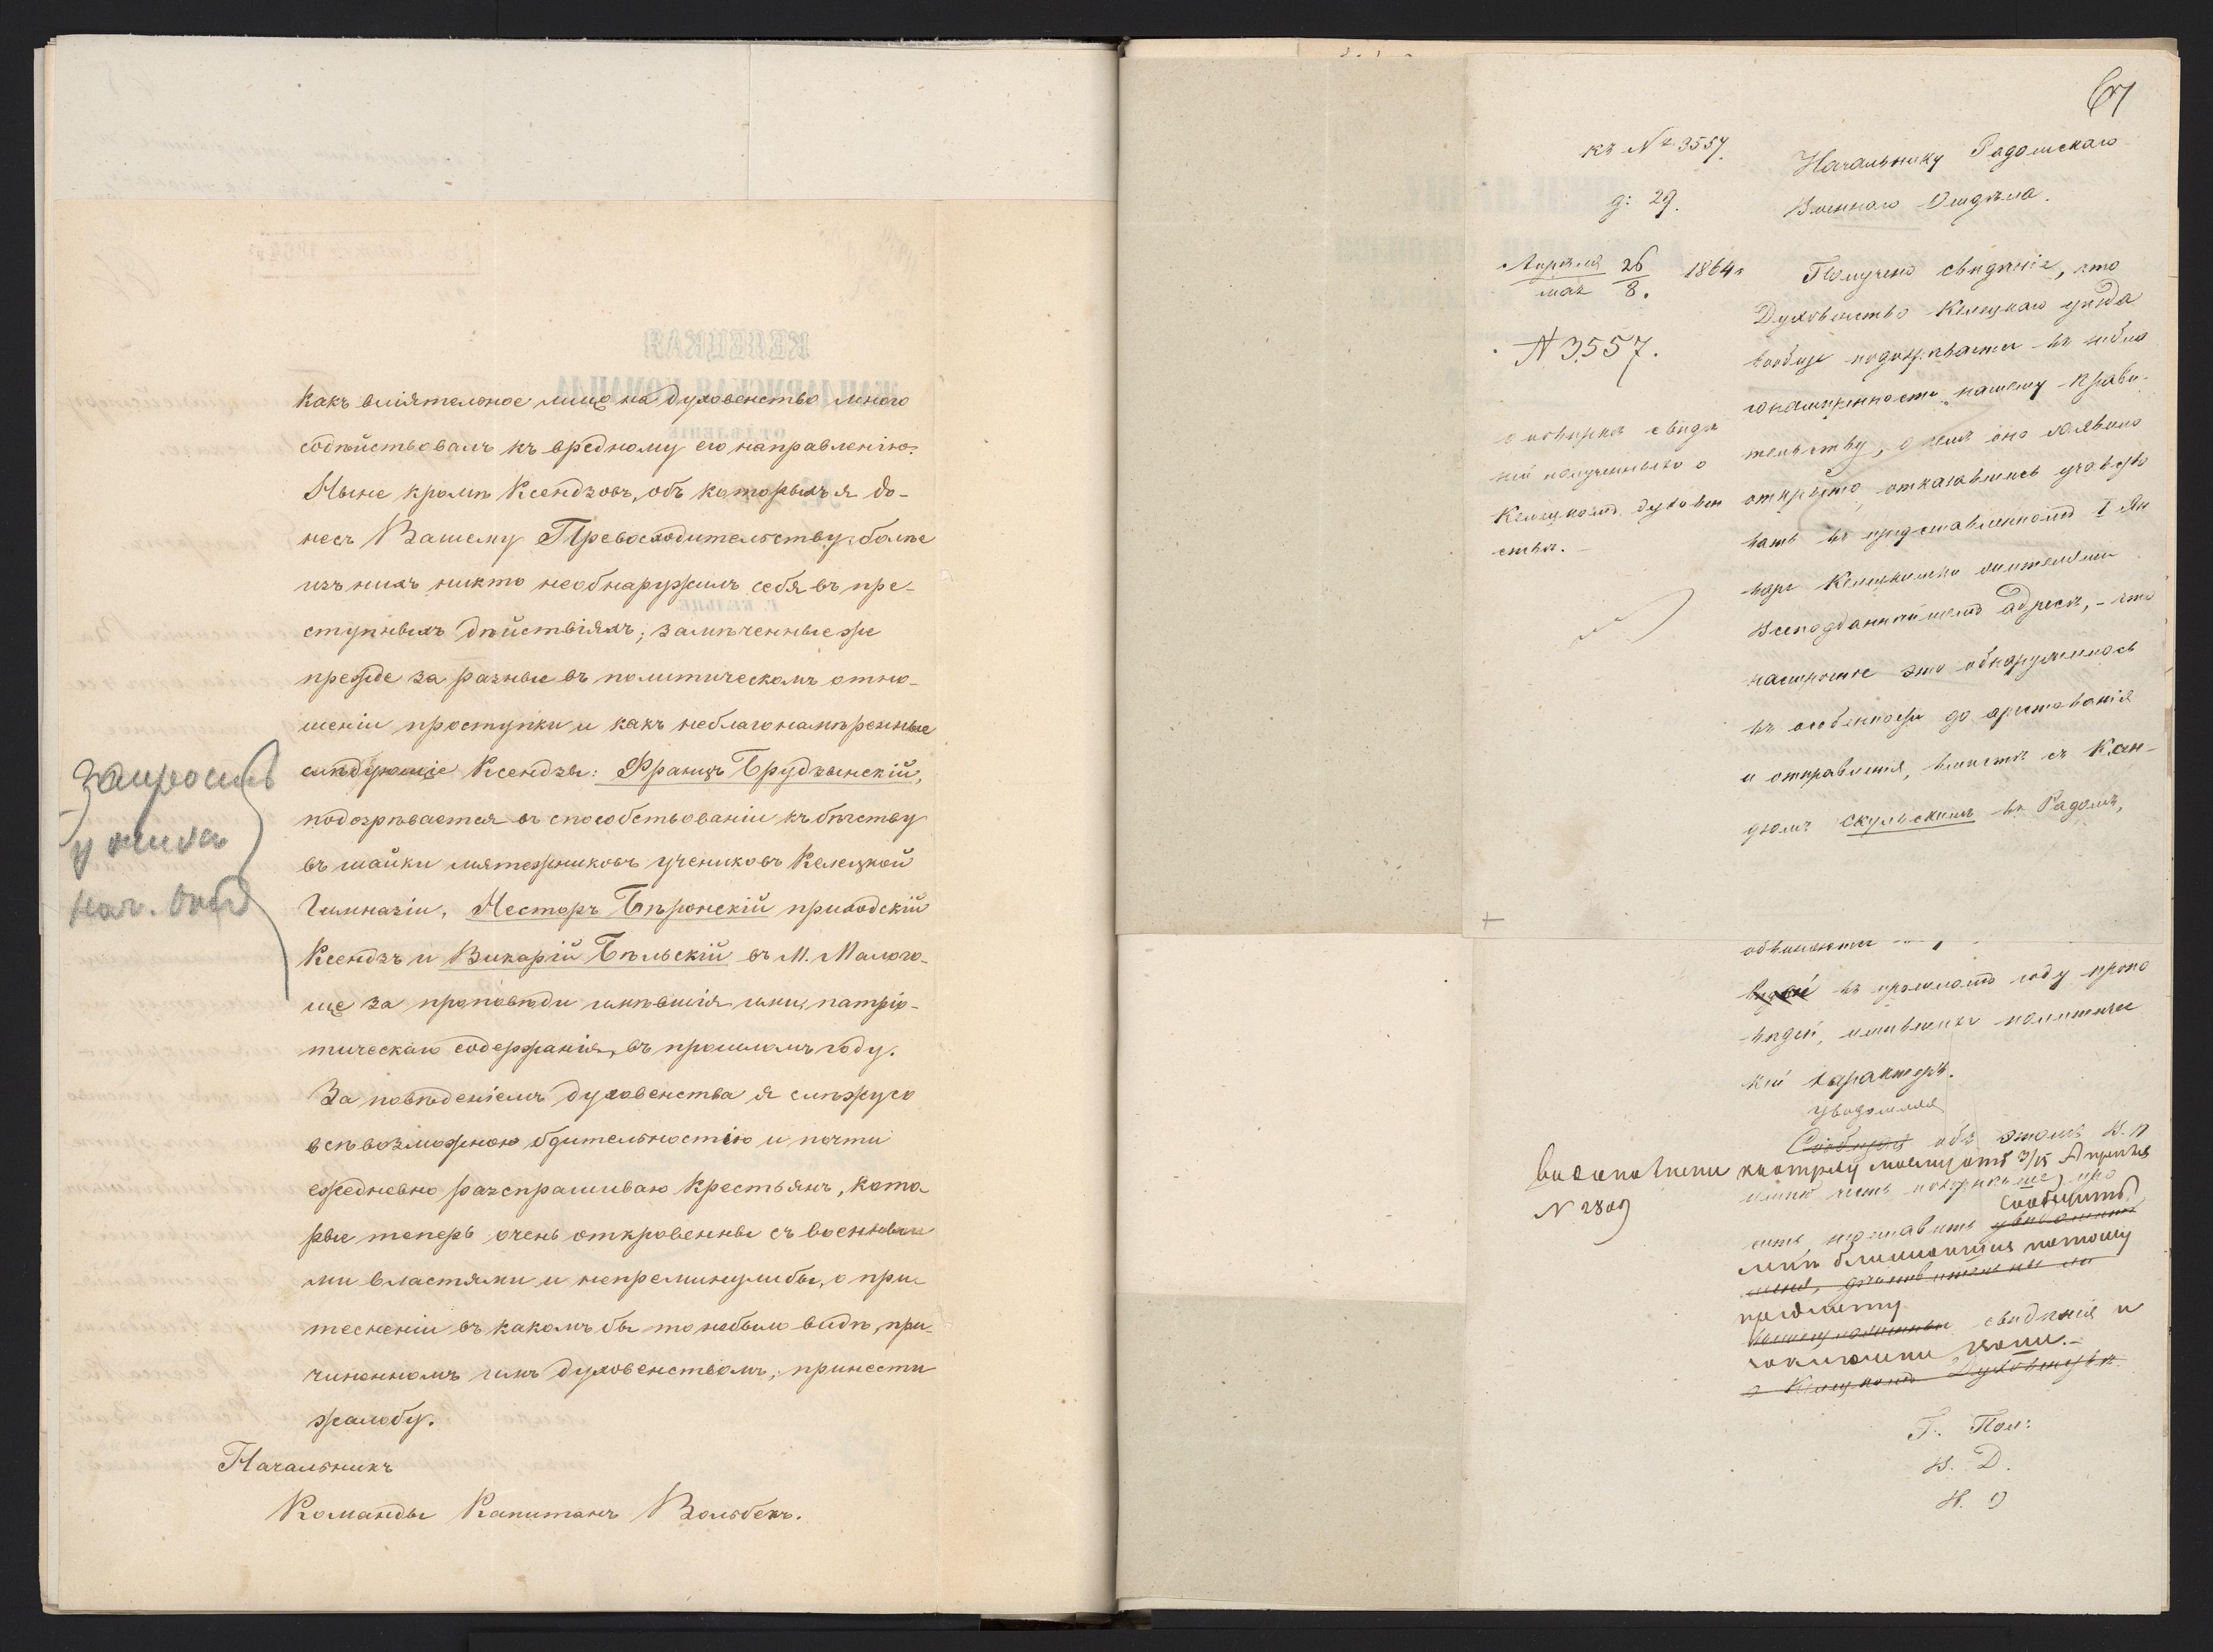 какъ вліятельное лице на духовенство много
содѣйствовалъ къ вредному его направленію.
Ныне кромѣ Ксендзовъ, объ которыхъ я до-
несъ Вашему Превосходительству, болѣе
изъ нихъ никто необнаружилъ себя въ пре-
ступныхъ дѣйствіяхъ; замѣченные же
прежде за разные въ политическомъ отно-
шеніи проступки и какъ неблагонамѣренные
слѣдующіе Ксендзы: Францъ Брудзынскій,
подозрѣвается въ способствованіи къ бѣгству
въ шайки мятежниковъ учениковъ Келецкой
Гимназіи, Несторъ Бѣронскій приходскій
Ксендзъ и Викарій Бѣльскій въ М. Малого-
ще за проповѣди имѣвшія патріо-
тическаго содержанія, въ прошломъ году.
За повѣденіемъ духовенства я слѣжу со
всѣвозможною бдительностію и почти
ежедневно разспрашиваю Крестьянъ, кото-
рые теперь очень откровенны съ военны-
ми властями и непреминули бы, о при-
тесненіи въ какомъ бы то небыло видѣ, при-
чиненномъ имъ духовенствомъ, принести
жалобу.
Начальникъ
Команды Капитанъ Вольбекъ.
Запросить
у
нач. Отд
къ № 3557.
д: 29.
Апрѣля 26 1864 г
мая 8.
№ 3557.
о свѣдѣ
ній полученныхъ о
Келецкомъ духовен
ствѣ.
Начальнику Радомскаго
Военнаго Отдѣла.
Получено свѣдѣніе, что
Духовенство Келецкаго уѣзда
вообще подозрѣвается въ небла
гонамѣренности нашему Прави-
тельству, о чемъ оно заявило
открыто, отказавшись участво
вать въ представленномъ 1 Ян
варя Келецкими жителями
Всеподданнѣйшемъ адресѣ, - что
настроеніе это обнаружилось
въ особенности до арестованія
и отправленія, вмѣстѣ съ Ксен-
дзомъ Скульскимъ въ Радомъ,
въ прошломъ году пропо
вѣдей, имѣвшихъ политичес
кій характеръ.
увѣдомляя
Сообщая объ этомъ В. П
въ дополненіи къ отзыву моему отъ 3/15 Апрѣля
№ 2809
имѣю честь покорнѣйше про
сить сообщить
мнѣ ближайшія по этому
предмету
свѣдѣнія и
заключеніи
о Келецкомъ Духовенствѣ.
Г. Пол:
В. Д.
Н. О